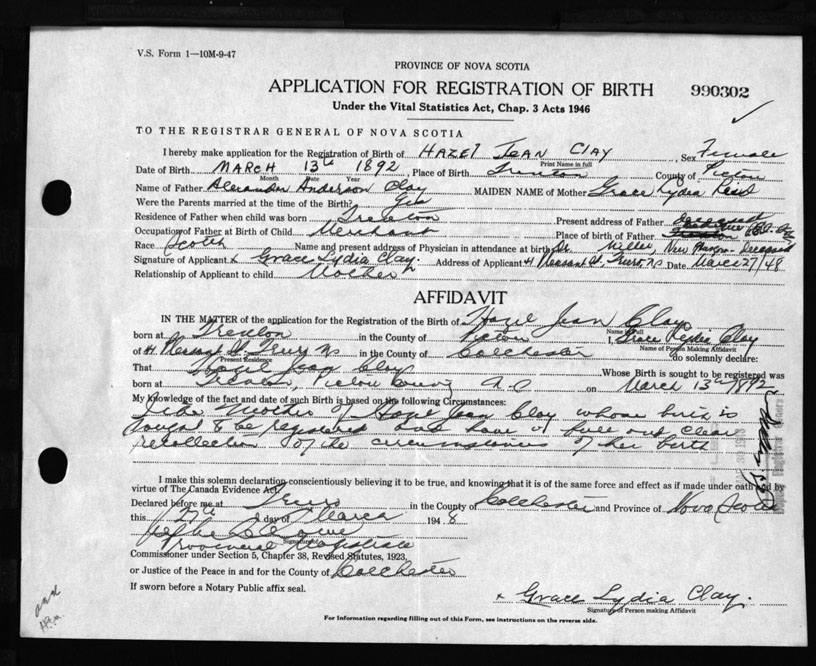 V.S. Form 1—10M-9-47
PROVINCE OF NOVA SCOTIA
APPLICATION FOR REGISTRATION OF BIRTH 990302
Under the Vital Statistics Act, Chap. 3 Acts 1946
TO THE REGISTRAR GENERAL OF NOVA SCOTIA
I hereby make application for the Registration of Birth of HAZEL JEAN CLAY, Sex Female
Print Name in full
Date of Birth MARCH 13th 1892, Place of Birth Trenton County of Pictou
Month Date Year
Name of Father Alexander Anderson Clay MAIDEN NAME of Mother Grace Lydia Reid
Were the Parents married at the time of the Birth? Yes
Residence of Father when child was born Trenton Present address of Father Deceased
Occupation of Father at Birth of Child Merchant Place of birth of Father
Race Scotch Name and present address of Physician in attendance at birth Dr. Miller, New Glasgow - Deceased
Signature of Applicant x Grace Lydia Clay. Address of Applicant 4 Pleasant St. Truro NS Date March 27/48
Relationship of Applicant to child Mother
AFFIDAVIT
IN THE MATTER of the application for the Registration of the Birth of Hazel Jean Clay
Name in Full
born at Trenton in the County of Pictou I, Grace Lydia Clay
Name of Person Making Affidavit
of 4 Pleasant St Truro NS in the County of Colchester do solemnly declare:
Present Residence
That Hazel Jean Clay Whose Birth is sought to be registered was
born at Trenton, Pictou County N.S. on March 13th 1892
My knowledge of the fact and date of such Birth is based on the following Circumstances:
I the Mother of Hazel Jean Clay whose birth is
sought to be registered and have a full and clear
recollection of the circumstances of her birth
I make this solemn declaration conscientiously believing it to be true, and knowing that it is of the same force and effect as if made under oath and by
virtue of The Canada Evidence Act.
Declared before me at Truro in the County of Colchester and Province of Nova Scotia
this 27th day of March 1948
Signature
Provincial Magistrate
Commissioner under Section 5, Chapter 38, Revised Statutes, 1923,
or Justice of the Peace in and for the County of Colchester
If sworn before a Notary Public affix seal.
x Grace Lydia Clay.
Signature of Person making Affidavit
For Information regarding filling out of this Form, see instructions on the reverse side.